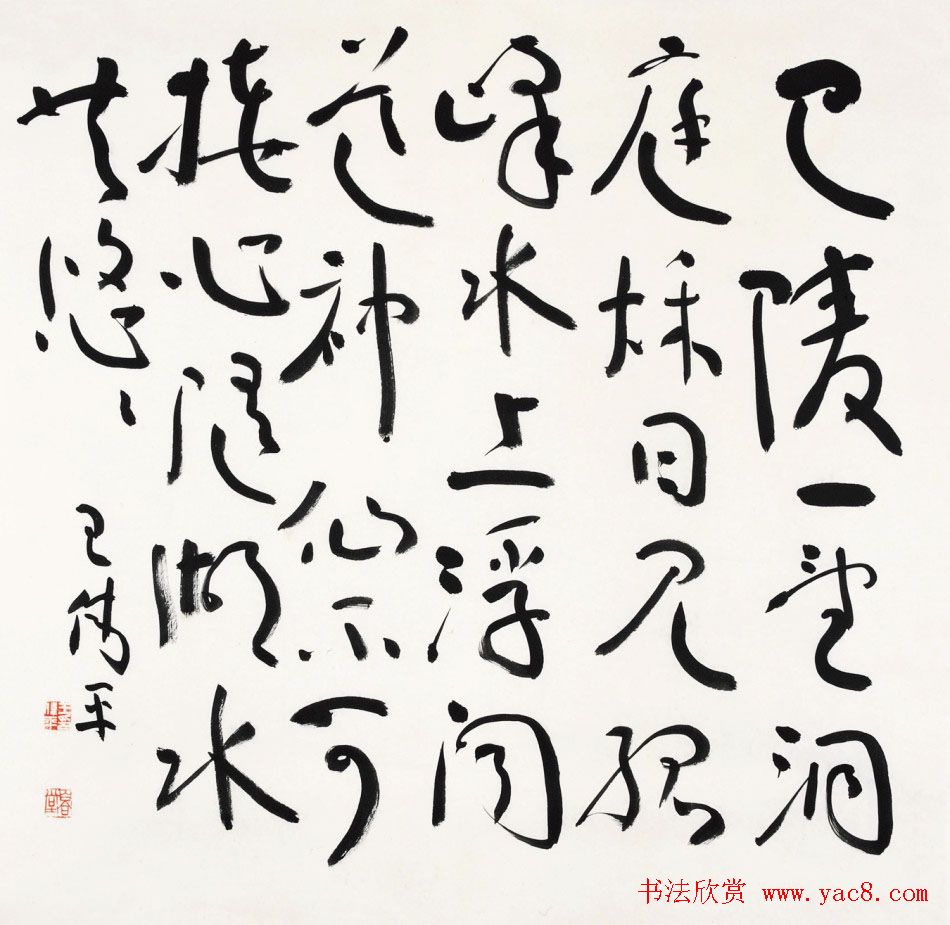 巴陵一望洞
庭秋日見孤
峰水上浮聞
道神仙不可
接心隨湖水
共悠〻
王偉平
书法欣赏 www.yac8.com